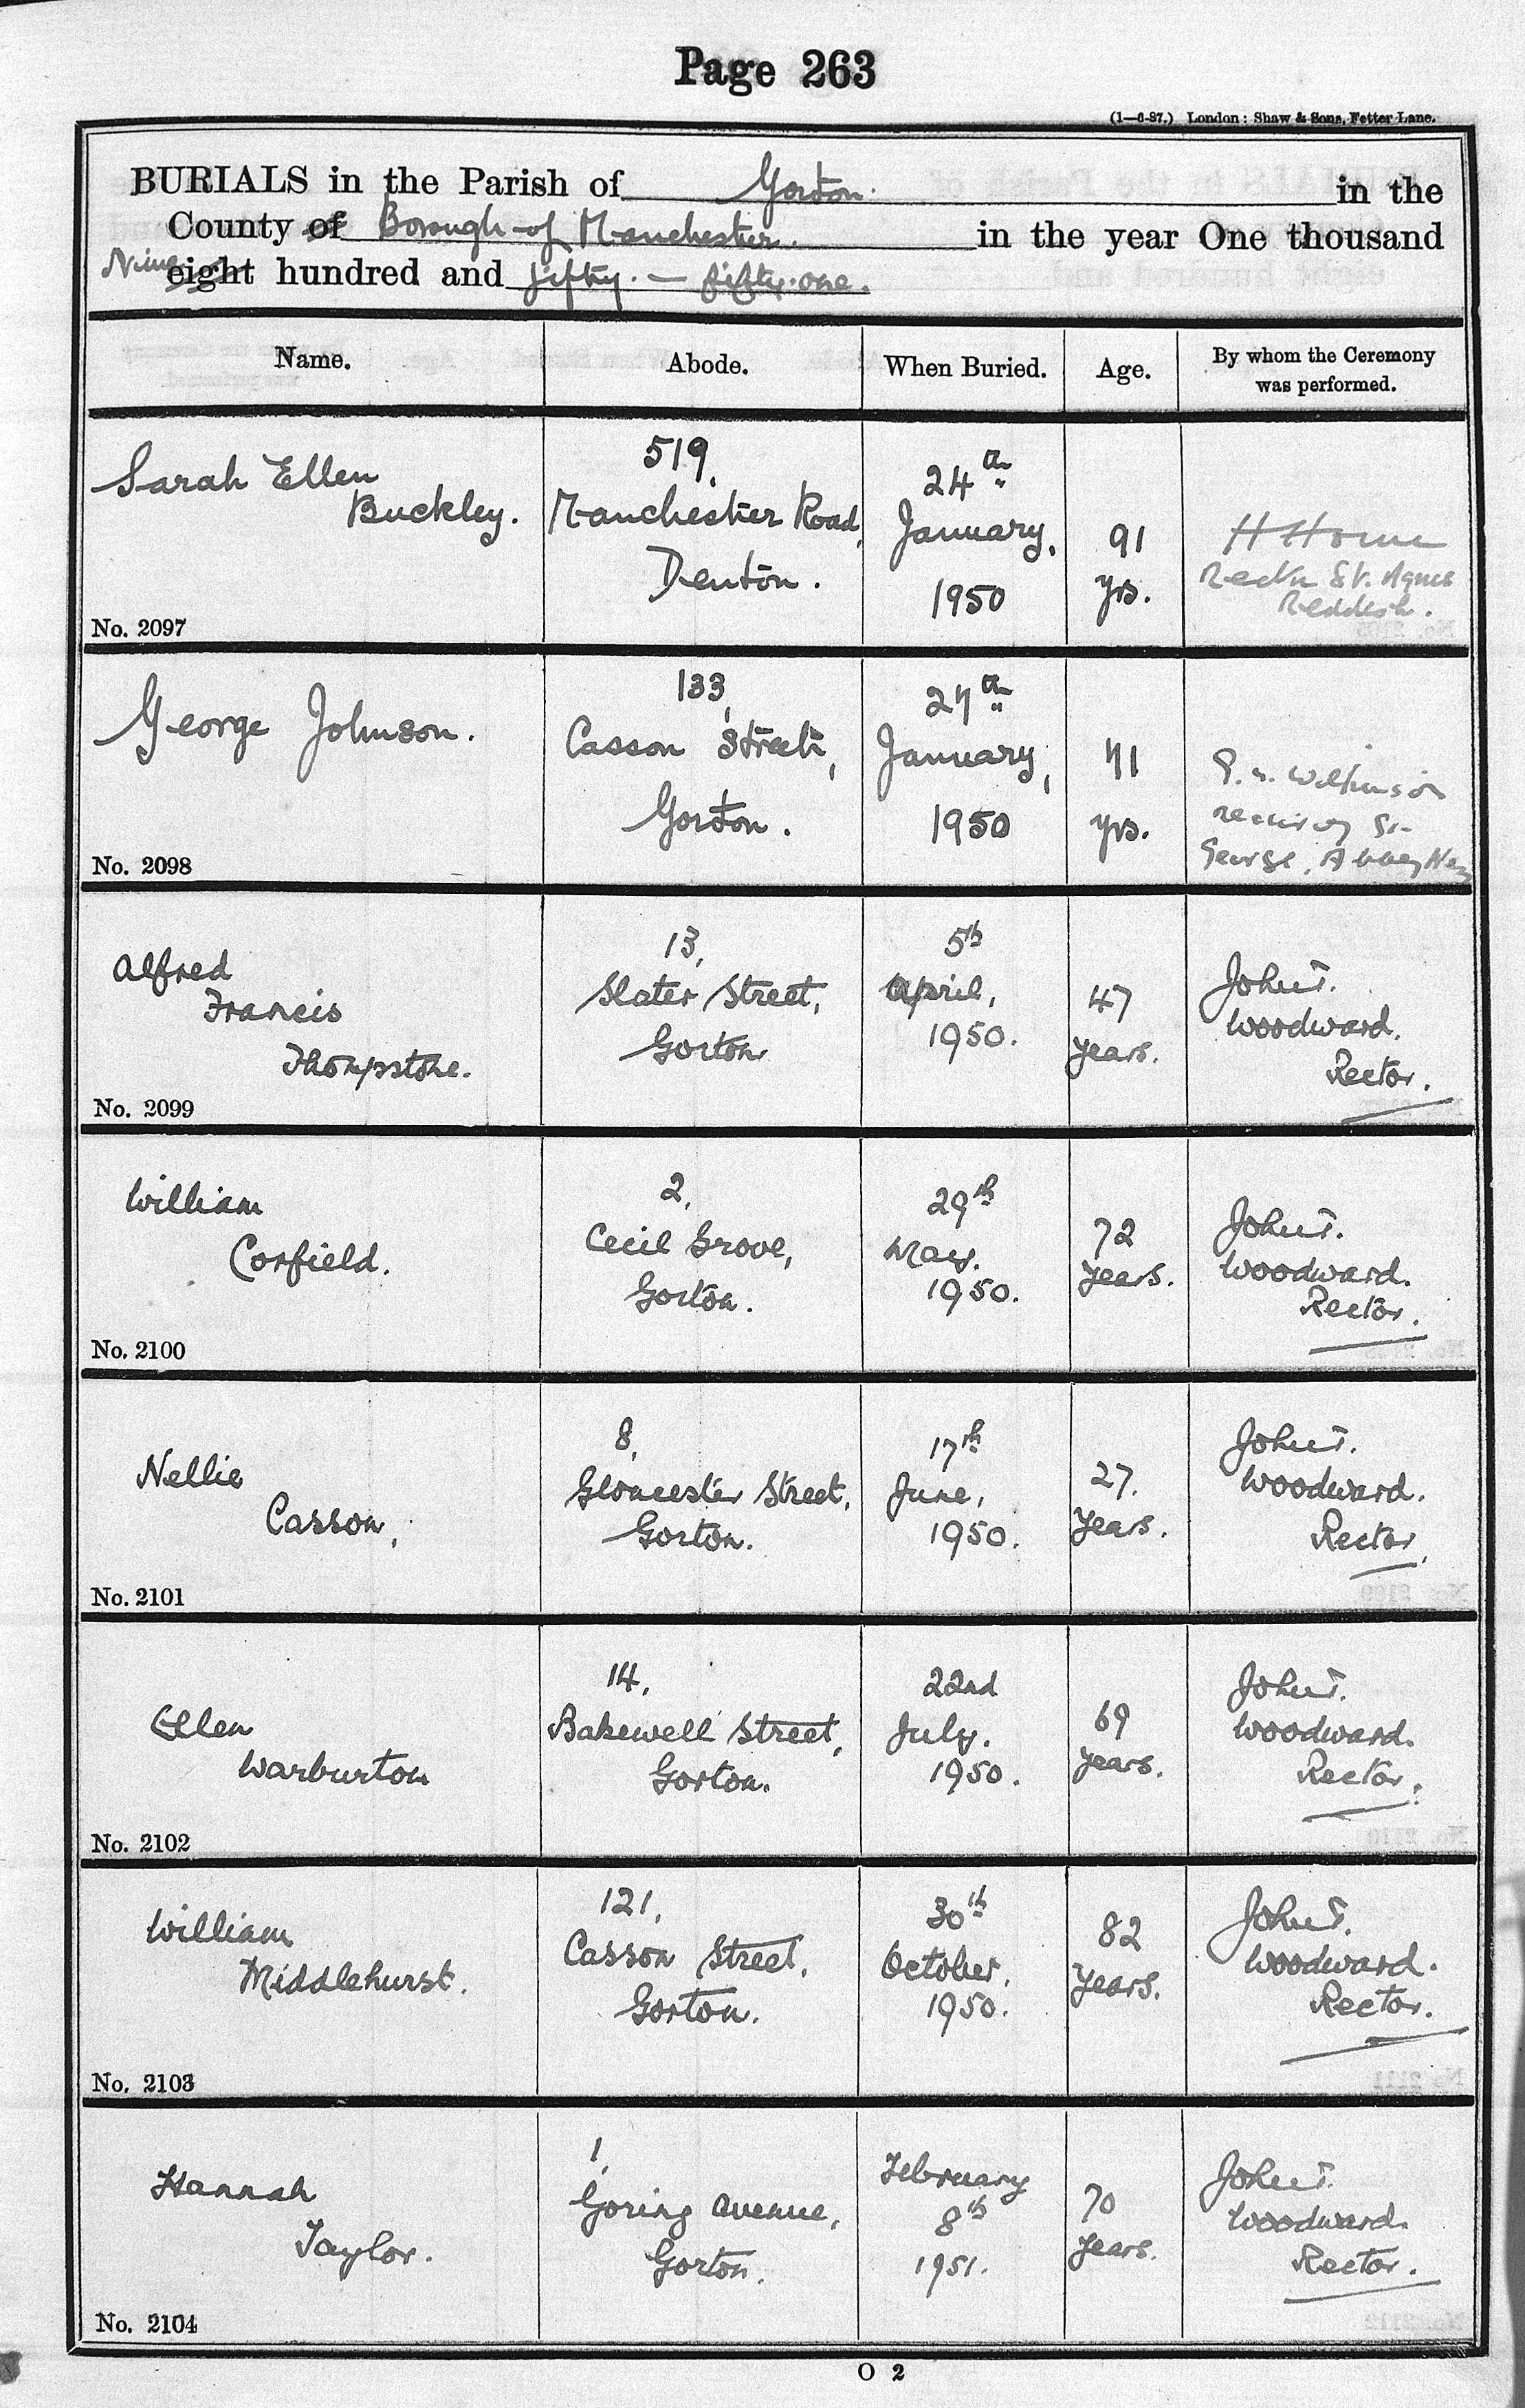 Page 263
(1—6-97.) London: Shaw & Sons, Fetter Lane.
BURIALS in the Parish of Gorton. in the
County of Borough of Manchester. in the year One thousand
Nine eight hundred and fifty. — fifty-one.
Name. Abode. When Buried. Age. By whom the Ceremony
was performed.
Sarah Ellen
Buckley.
519,
Manchester Road,
Denton.
24th
January,
1950
91
yrs.
H Horne
Rector St. Agnes
Reddish.
No. 2097
George Johnson.
133,
Casson Street,
Gorton.
27th
January,
1950
71
yrs.
Wilkinson
St.
George, Abbey Hey
No. 2098
Alfred
Francis
Thompstone.
13,
Slater Street,
Gorton
5th
April,
1950.
47
years.
John T.
Woodward.
Rector.
No. 2099
William
Corfield.
2,
Cecil Grove,
Gorton.
29th
May.
1950.
72
years.
John T.
Woodward.
Rector.
No. 2100
Nellie
Casson,
8,
Gloucester Street,
Gorton.
17th
June,
1950.
27.
years.
John T.
Woodward.
Rector,
No. 2101
Ellen
Warburton
14,
Bakewell Street,
Gorton.
22nd
July.
1950.
69
years.
John T.
Woodward.
Rector.
No. 2102
William
Middlehurst.
121,
Casson Street,
Gorton.
30th
October,
1950.
82
years.
John T.
Woodward.
Rector.
No. 2103
Hannah
Taylor.
1,
Goring Avenue,
Gorton.
February
8th
1951.
70
years.
John T.
Woodward.
Rector.
No. 2104
O 2